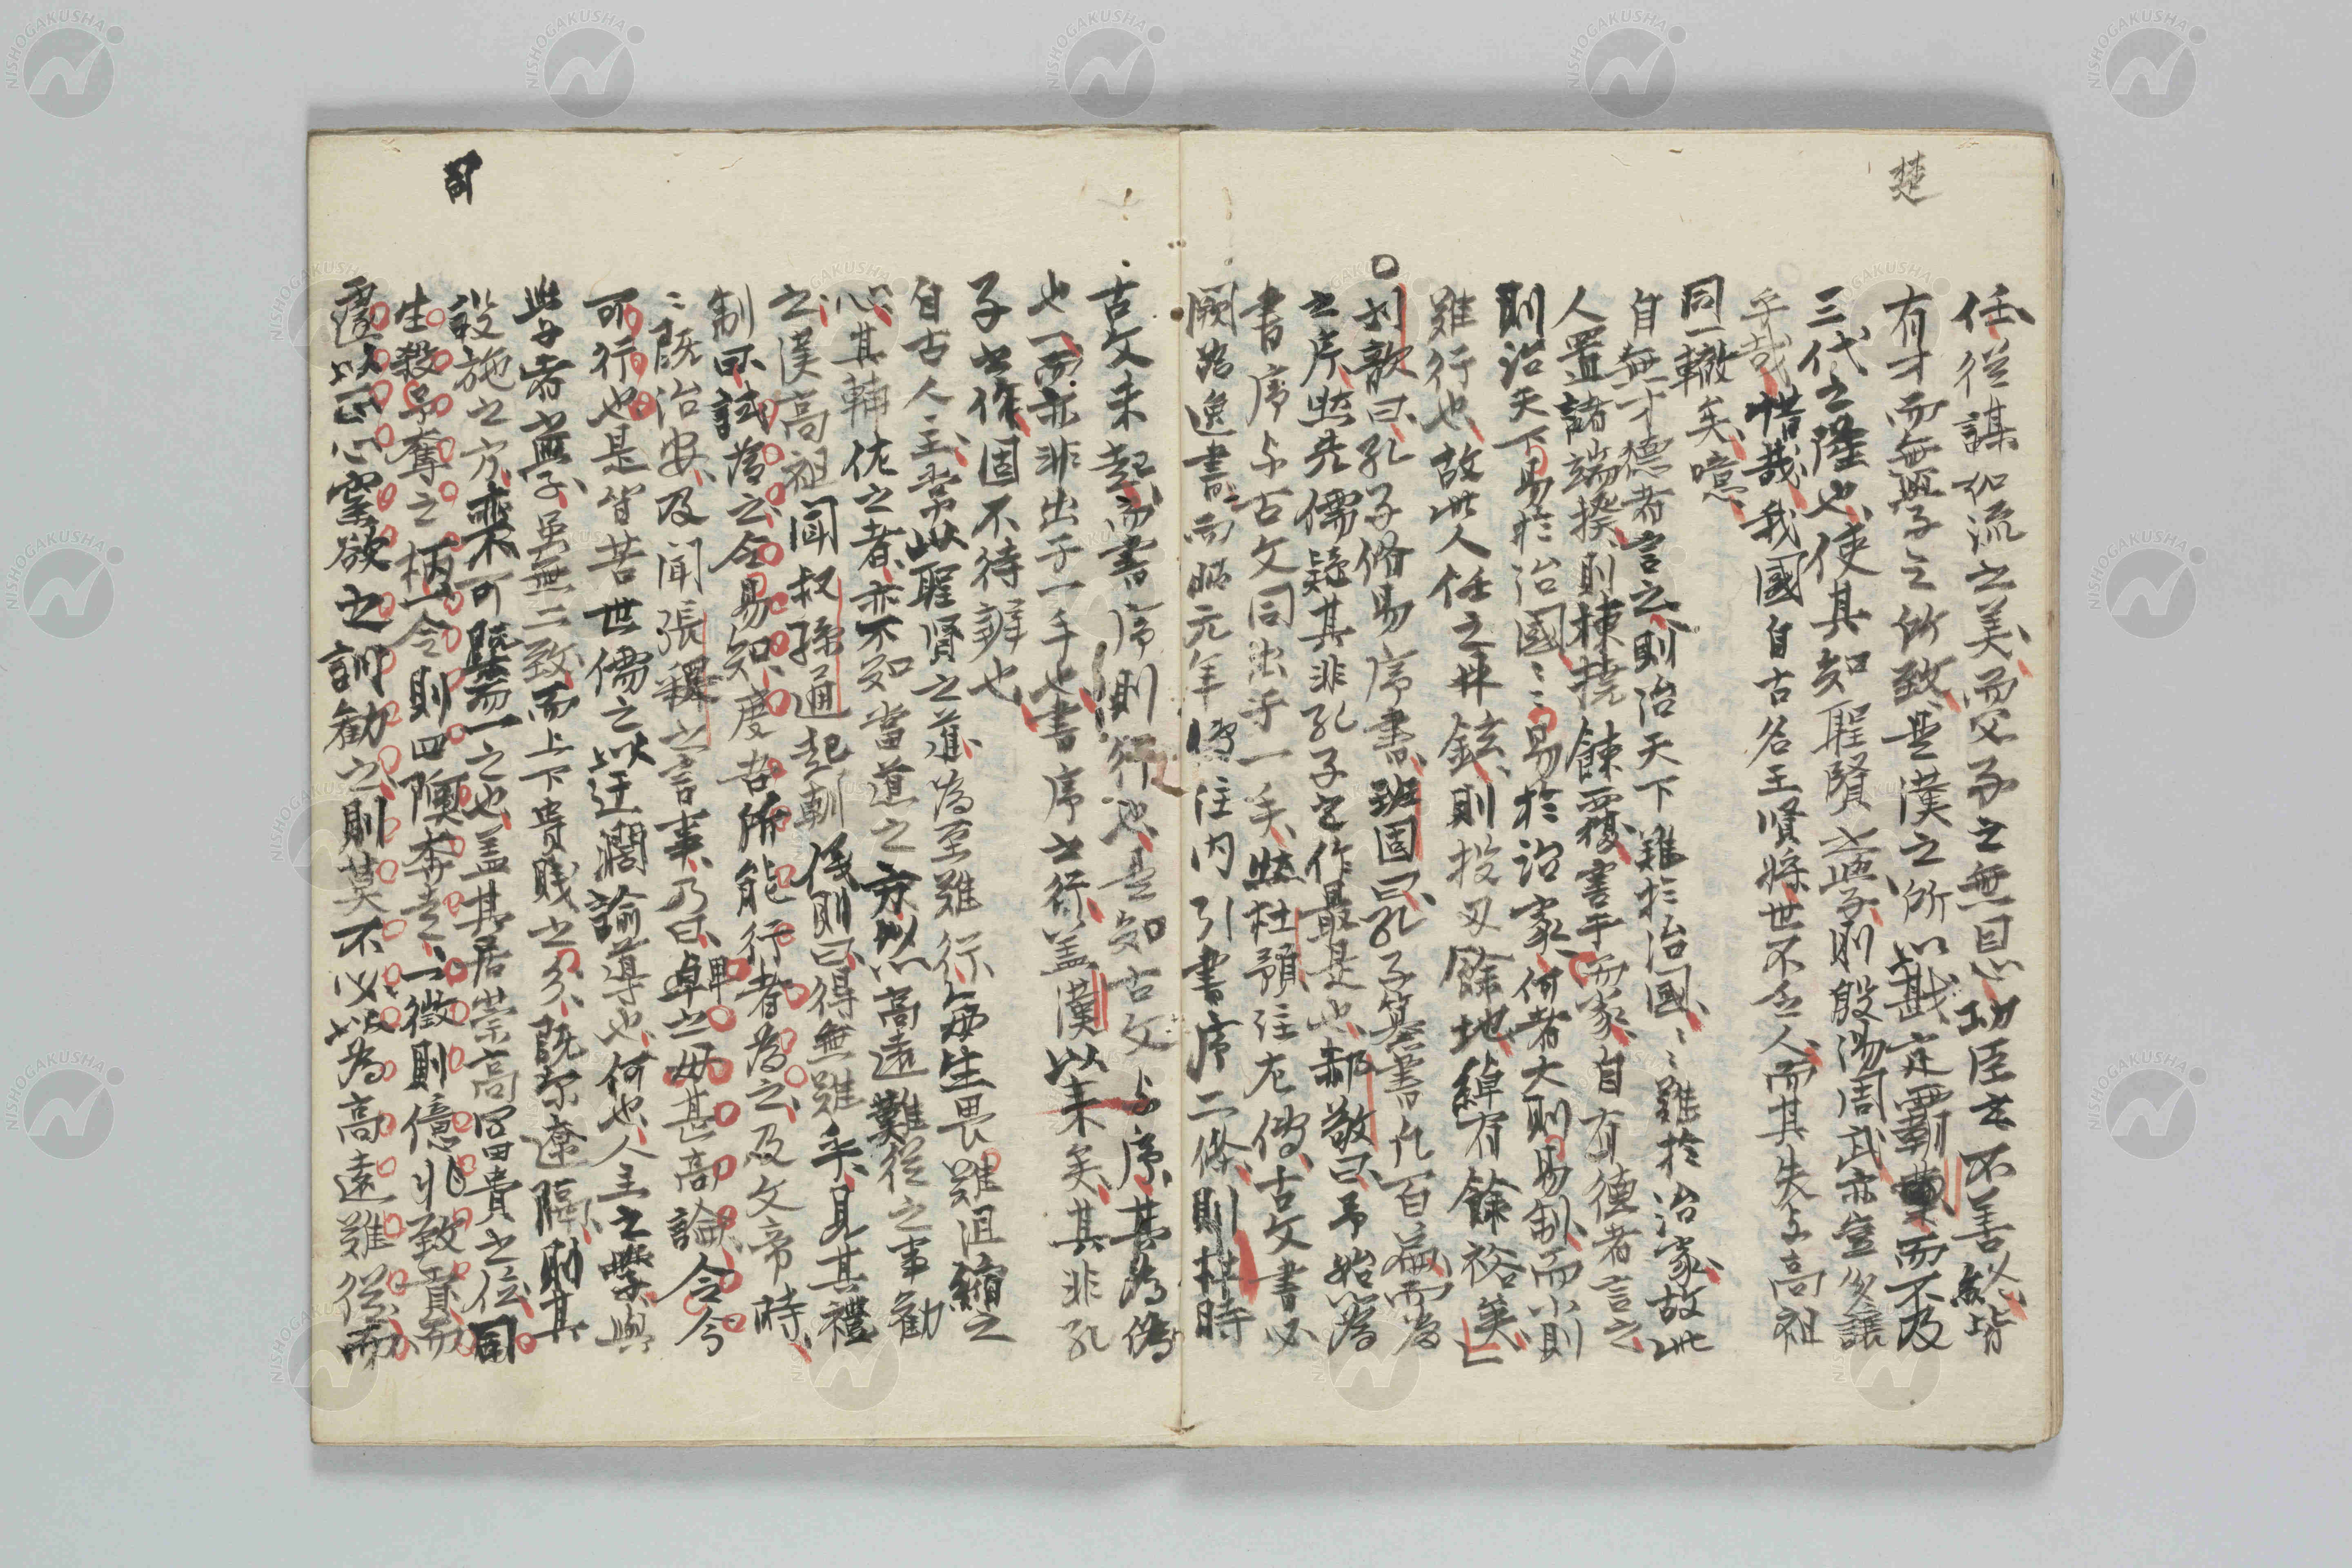 楚
任從謀如流之美而父子之無恩功臣之不善以終皆
有才而無學之所致是漢之所以戡定霸業而不及
三代之隆也使其知聖賢之學則殷湯周武亦豈多讓
乎哉惜哉我國自古名主賢將世不乏人而其失与高祖
同一轍矣噫
自無才德者言之則治天下難於治國〻難於治家故此
人置諸端揆則棟撓餗覆害乎而家自有德者言之
則治天下易於治國〻〻易於治家何者大則易制而小則
難行也故此人任之鼎鉉則投刃餘地綽有餘裕矣
○劉歆曰孔子脩易序書班固曰孔子篡書凡百篇而為
之序然先儒疑其非孔子之作最是也郝敬曰予始為
書序与古文同出乎一手然杜預注左傳古文書必
闕為逸書而昭元年傳注内引書序二條則杜時
古文未起而書序則行也是知古文与序其為偽
也一而亦非出于一手也書序之行蓋漢以来矣其非孔
子之作固不待辨也
自古人主常以聖賢之道為至難行每生畏難沮縮之
心其輔佐之者亦不知當道之方以高遠難從之事勸
之漢高祖聞叔孫通起朝儀則曰得無難乎見其禮
制曰可試為之令易知度吾所能行者為之及文帝時
〻既治安及聞張釋之言事乃曰卑之毋甚高論令今
可行也是皆苦世儒之以迂濶諭導也何也人主之學與
學者之學虽無二致而上下貴賤之分既尔遼隔則其
設施之方亦不可槩而一之也蓋其居崇高冨貴之位同
生殺予奪之柄一令則四陬奔走一徴則億兆致貢而
遽以正心窒欲之訓勸之則莫不必以為高遠難從而